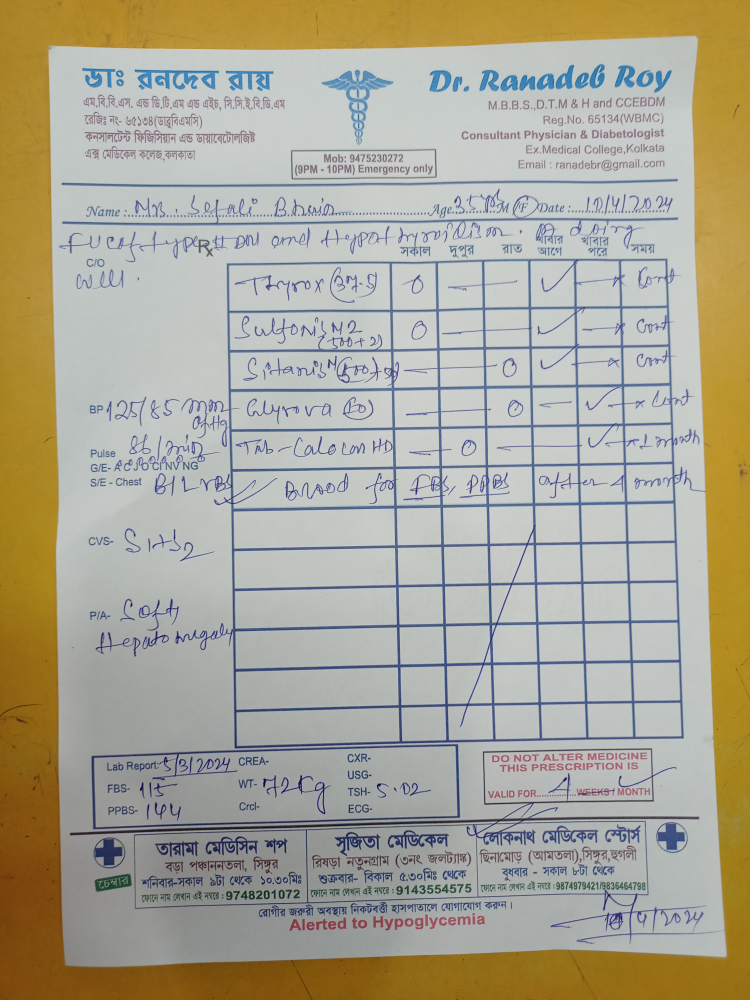 ডাঃ রনদেব রায়
এম.বি.বি.এস. এন্ড ডি.টি.এম এন্ড এইচ, সি.সি.ই.বি.ডি.এম
রেজিঃ নং- ৬৫১৩৪(ডাব্লুবিএমসি)
কনসালটেন্ট ফিজিসিয়ান এন্ড ডায়াবেটোলজিষ্ট
এক্স মেডিকেল কলেজ,কলকাতা
Dr. Ranadeb Roy
M.B.B.S.,D.T.M & H and CCEBDM
Reg.No. 65134(WBMC)
Consultant Physician & Diabetologist
Ex.Medical College,Kolkata
Email : ranadebr@gmail.com
Mob: 9475230272
(9PM - 10PM) Emergency only
Name : Sefali Age 35 M/F Date : 10/4/2024
FUC of type II DM and Hypothyroidism. doing
Rx সকাল দুপুর রাত খাবার আগে খাবার পরে সময়
C/O
well.
Thyrox (37.5) 0 — ✓ — x Cont
M2 (500+2) 0 — ✓ — x Cont
(500+50) — 0 ✓ — x Cont
BP 125/85 mm of Hg
Glyrova (50) — 0 — ✓ x Cont
Pulse 86/min
Tab - Calocon HD — 0 — ✓ x 1 month
G/E- A C J O CI NV NG
S/E - Chest B/L VBS
Blood for FBS, PPBS after 1 month
CVS- S1+S2
P/A- Soft,
Hepatomegaly
Lab Report: 5/3/2024 CREA- CXR-
USG-
FBS- 115 WT- 72 kg TSH- 5.02
PPBS- 144 Crcl- ECG-
DO NOT ALTER MEDICINE
THIS PRESCRIPTION IS
VALID FOR 1 WEEKS / MONTH
চেম্বার
তারামা মেডিসিন শপ
বড়া পঞ্চাননতলা, সিঙ্গুর
শনিবার-সকাল ৯টা থেকে ১০.৩০মিঃ
ফোনে নাম লেখান এই নম্বরে : 9748201072
সূজিতা মেডিকেল
রিষড়া নতুনগ্রাম (৩নং জলট্যাঙ্ক)
শুক্রবার- বিকাল ৫.৩০মিঃ থেকে
ফোনে নাম লেখান এই নম্বরে : 9143554575
লোকনাথ মেডিকেল স্টোর্স
ছিনামোড় (আমতলা),সিঙ্গুর,হুগলী
বুধবার - সকাল ৮টা থেকে
ফোনে নাম লেখান এই নম্বরে : 9874979421/9836464798
রোগীর জরুরী অবস্থায় নিকটবর্ত্তী হাসপাতালে যোগাযোগ করুন।
Alerted to Hypoglycemia
10/4/2024